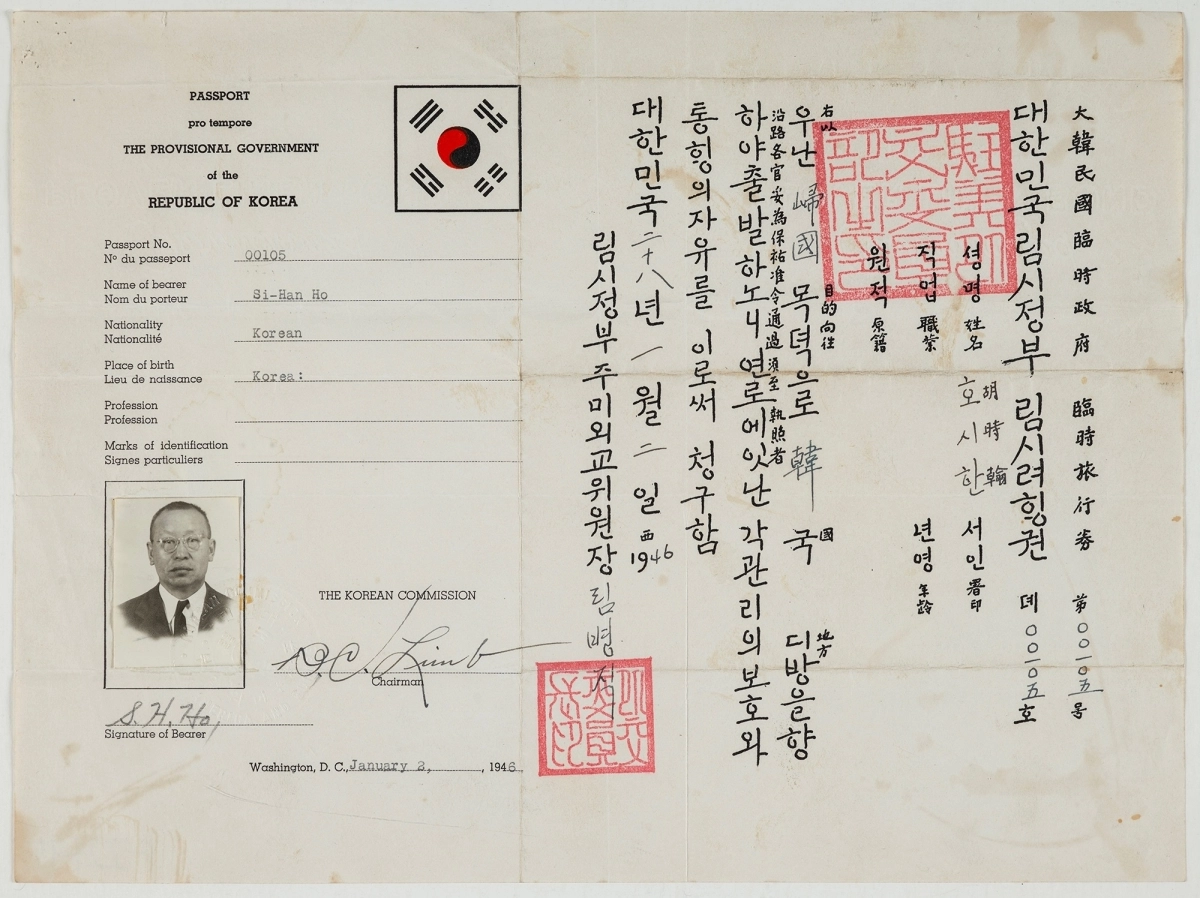 PASSPORT
pro tempore
THE PROVISIONAL GOVERNMENT
of the
REPUBLIC OF KOREA
Passport No.
Nº du passeport 00105
Name of bearer
Nom du porteur Si-Han Ho
Nationality
Nationalité Korean
Place of birth
Lieu de naissance Korea:
Profession
Profession
Marks of identification
Signes particuliers
THE KOREAN COMMISSION
D.C. Limb
Chairman
S. H. Ho,
Signature of Bearer
Washington, D. C., January 2, 1946
大韓民國臨時政府 臨時旅行券 第〇〇一〇五号
대한민국림시정부 림시려힝권 뎨〇〇一〇五호
셩명 姓名 호시한 胡時翰 서인 署印
직업 職業 년령 年龄
원적 原籍
右以 目的向徃 國 地方
우난 歸國 목뎍으로 韓 국 디방을향
沿路各官妥為保祐准令通過須至執照者
하야출발하노니연로에잇난 각관리의보호와
통힝의자유를 이로써 청구함
대한민국二十八년 一월二일 西1946
림시정부주미외교위원장 림병직
駐美外交委員部之印
外交委員長印